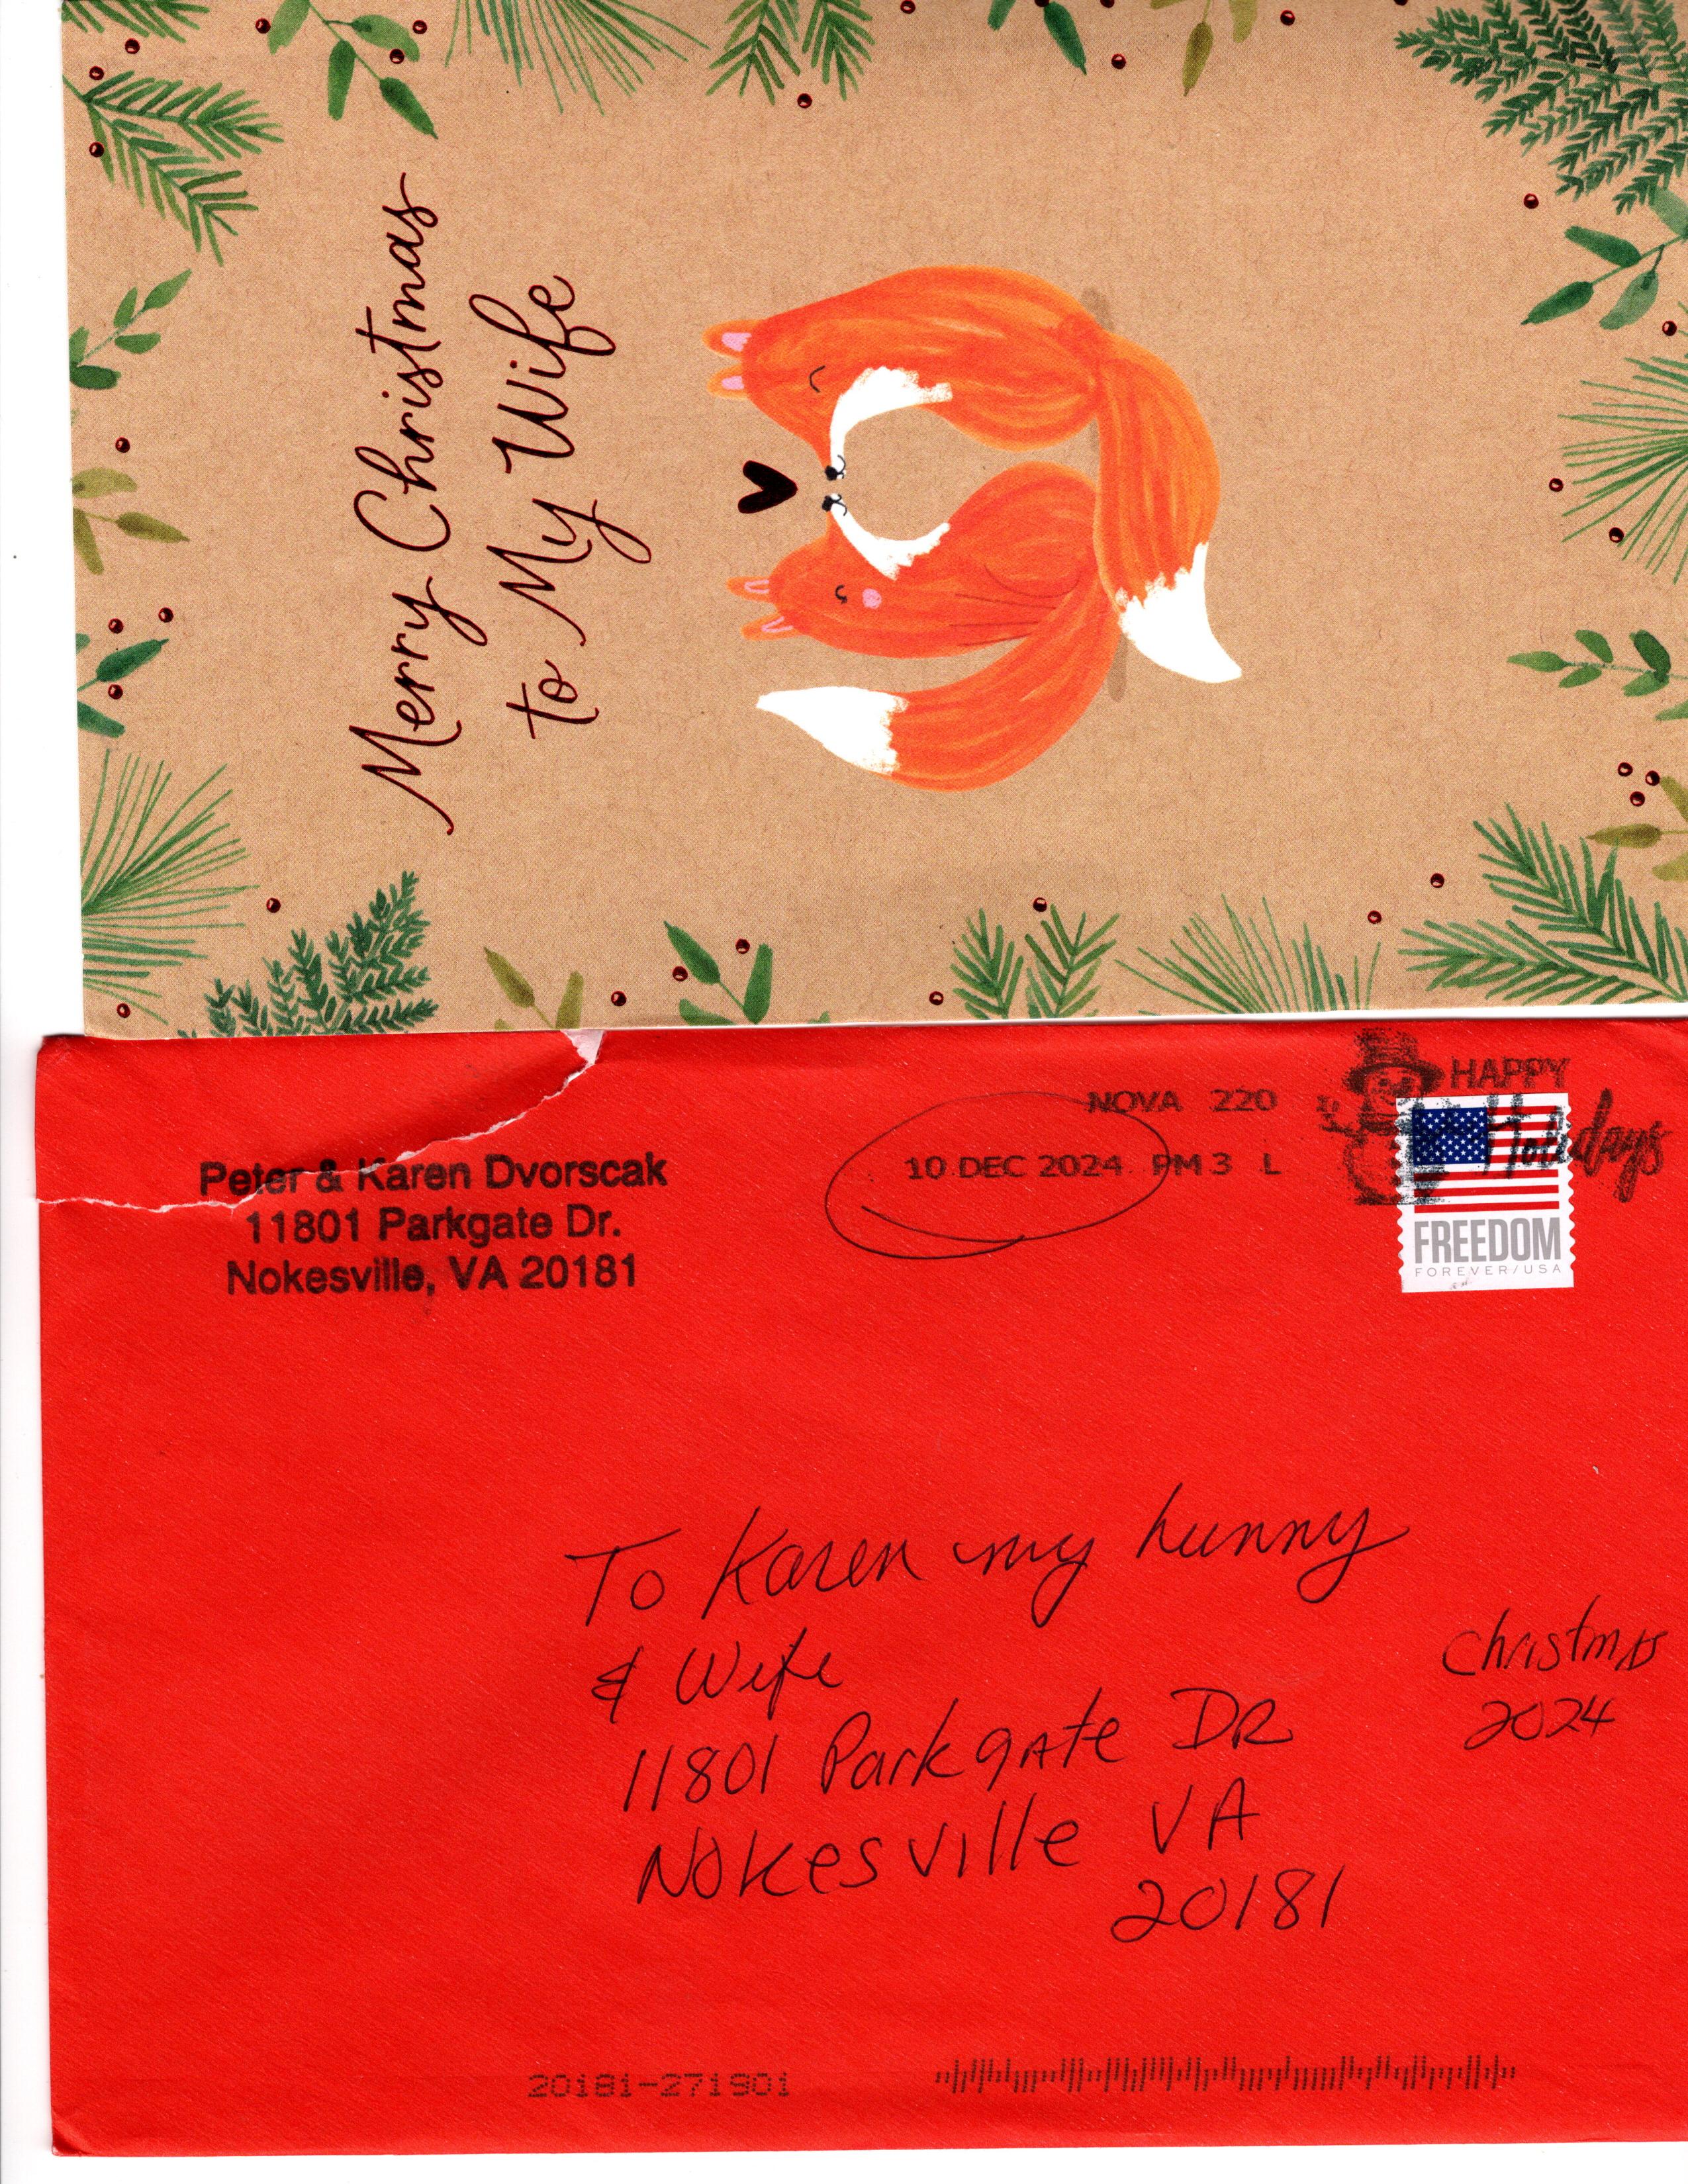 Merry Christmas
to My Wife
Peter & Karen Dvorscak
11801 Parkgate Dr.
Nokesville, VA 20181
NOVA 220
10 DEC 2024 PM 3 L
HAPPY
Holidays
FREEDOM
FOREVER/USA
To Karen my hunny
& Wife
11801 Parkgate DR
Nokesville VA
20181
Christmas
2024
20181-271901